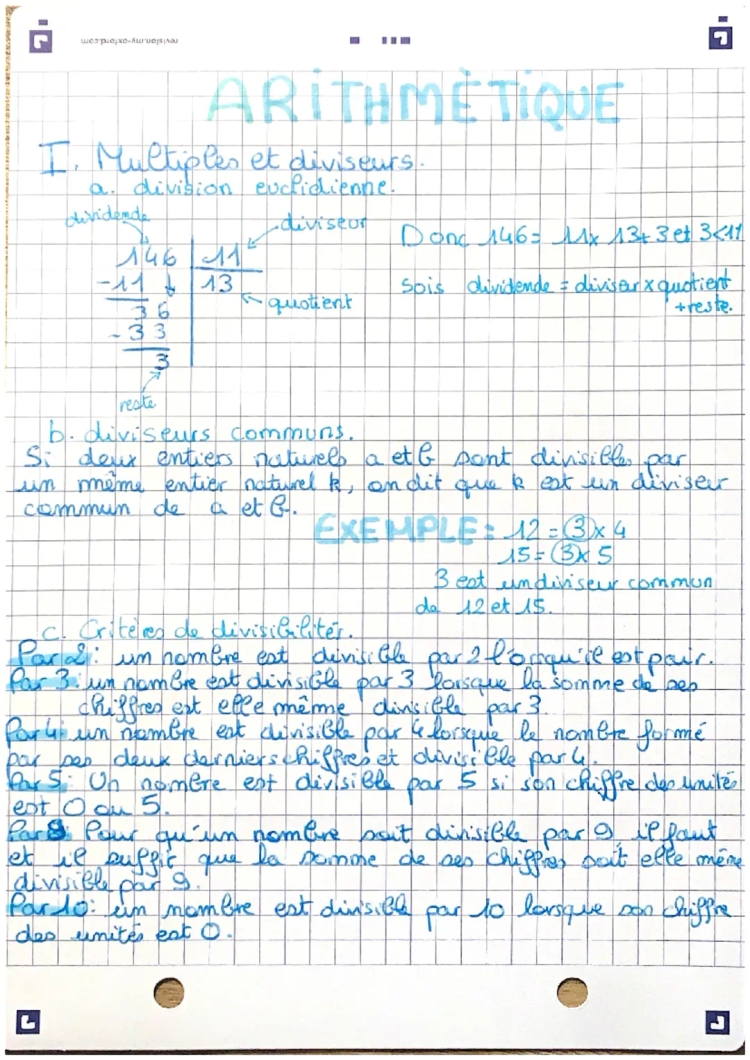 revision.my-oxford.com
ARITHMÈTIQUE
I. Multiples et diviseurs.
a. division euclidienne.
dividende
diviseur
146 11
-11 13
36
quotient
-33
3
reste
Donc 146= 11x 13+3 et 3<11
Sois dividende = divisar x quotient
+reste.
b. diviseurs communs.
Si deux entiers naturels a et b sont divisibles par
un même entier naturel k, on dit que k est un diviseur
commun de a et b.
EXEMPLE: 12=3x4
15=3x5
3 est un diviseur commun
de 12 et 15.
c. Critères de divisibilités.
Par 2: un nombre est divisible par 2 lorsqu'il est pair.
Par 3: un nombre est divisible par 3 lorsque la somme de ses
chiffres est elle même divisible par 3.
Par 4: un nombre est divisible par 4 lorsque le nombre formé
par ses deux derniers chiffres et divisible par 4.
Par 5: Un nombre est divisible par 5 si son chiffre des unités
est 0 ou 5.
Par 9: Pour qu'un nombre soit divisible par 9, il faut
et il suffit que la somme de ses chiffres soit elle même
divisible par 9.
Par 10: un nombre est divisible par 10 lorsque son chiffre
des unités est 0.